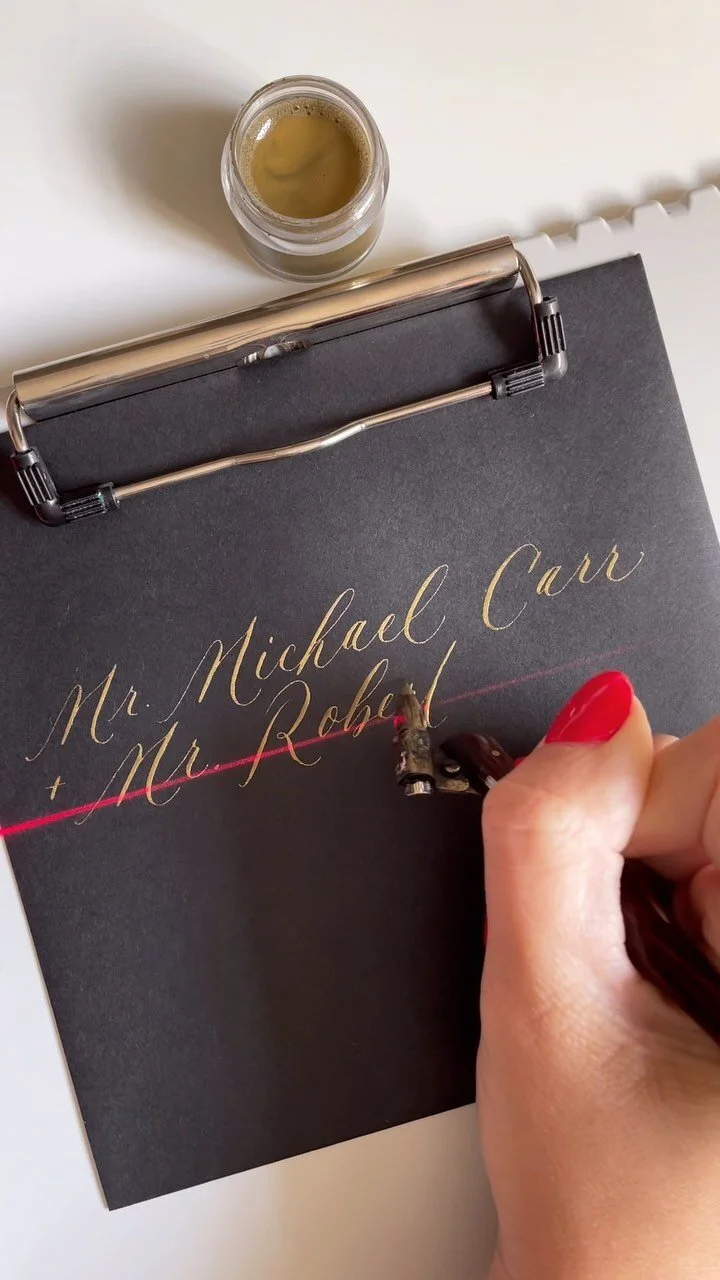 Mr. Michael Carr
+ Mr. Robert